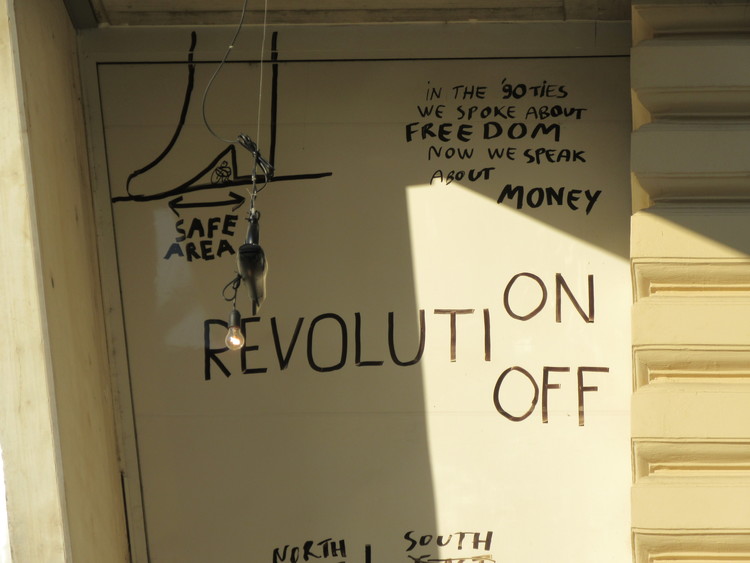 iN THE '90TiES
WE SPOKE ABOUT
FREEDOM
NOW WE SPEAK
ABOUT
MONEY
SAFE
AREA
REVOLUTION
OFF
NORTH
SOUTH